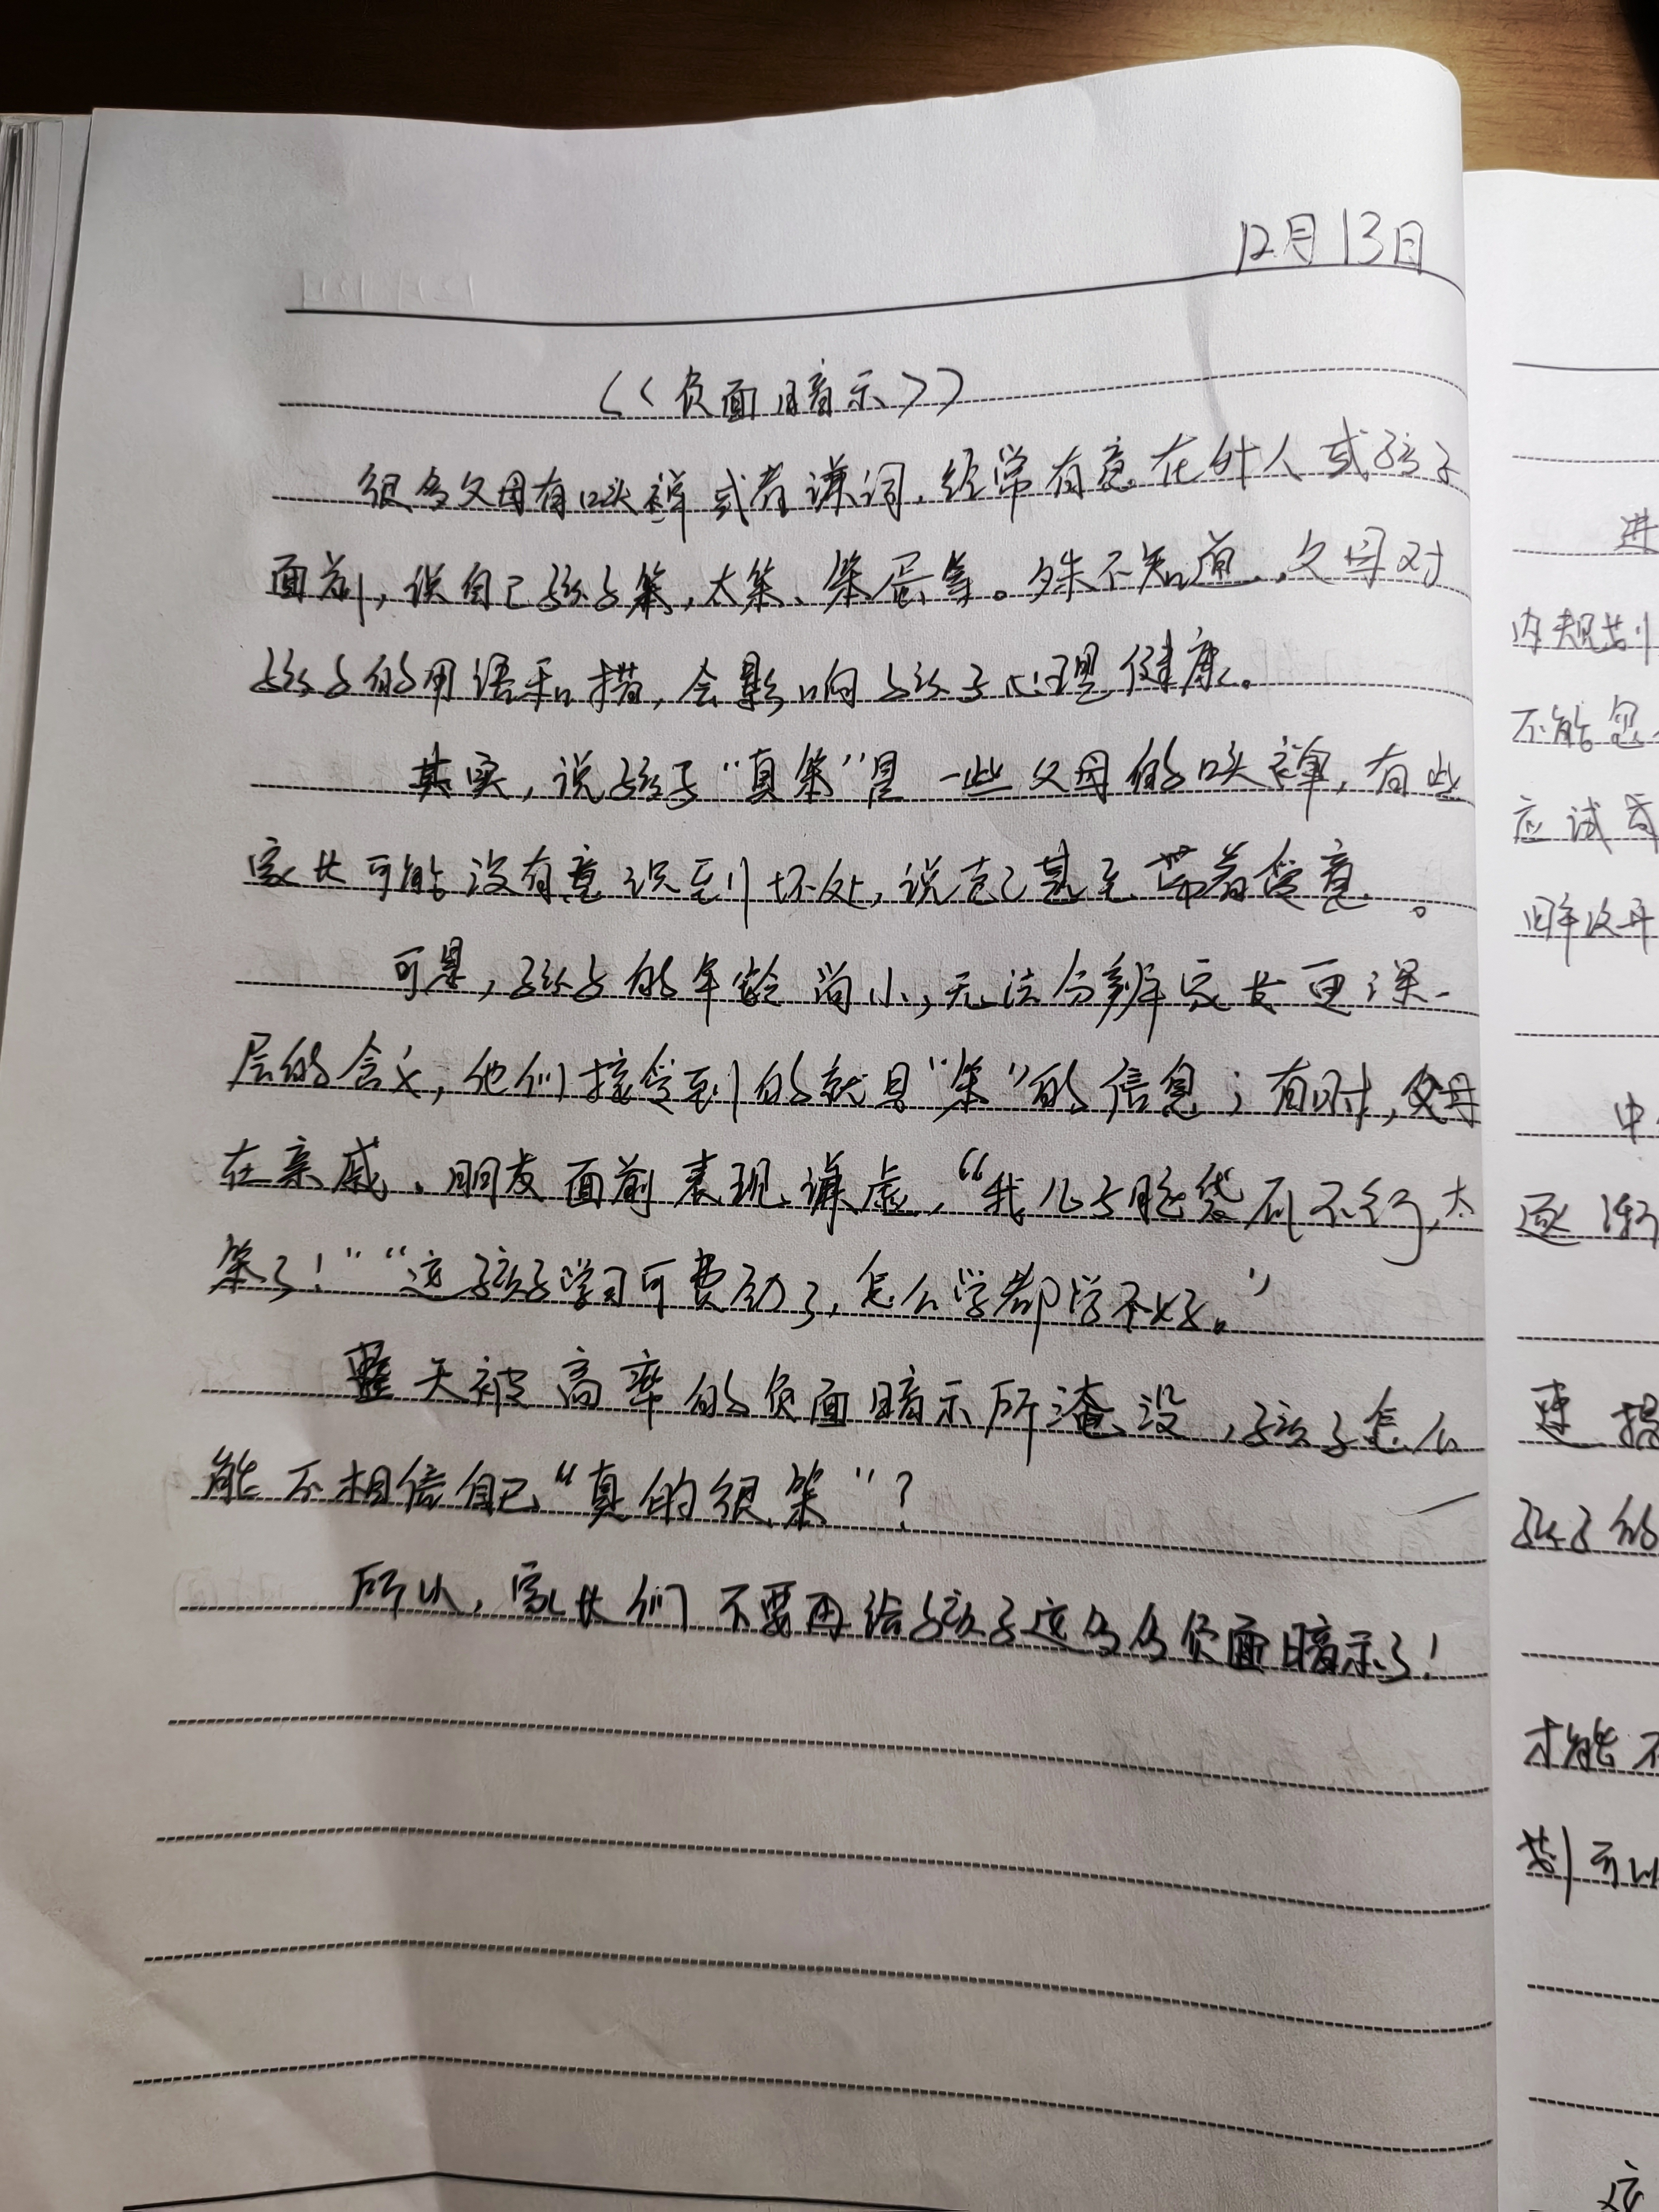 12月13日
《负面暗示》
很多父母有口头禅或者谦词,经常有意在外人或孩子
面前,说自己孩子笨,太笨、笨蛋等。殊不知道,父母对
孩子的用语和措,会影响孩子心理健康。
其实,说孩子“真笨”是一些父母的口头禅,有些
家长可能没有意识到坏处,说起甚至带着爱意。
可是,孩子的年龄尚小,无法分辨家长更深一
层的含义,他们接受到的就是“笨”的信息;有时,父母
在亲戚、朋友面前表现谦虚,“我儿子脑袋瓜不行,太
笨了!”“这孩子学习可费劲了,怎么学都学不好。”
整天被高率的负面暗示所淹没,孩子怎么
能不相信自己“真的很笨”?
所以,家长们不要再给孩子这么多负面暗示了!
进
内规划
不能忽
应试
中
逐渐
速 提
孩子的
才能不
划可以
这